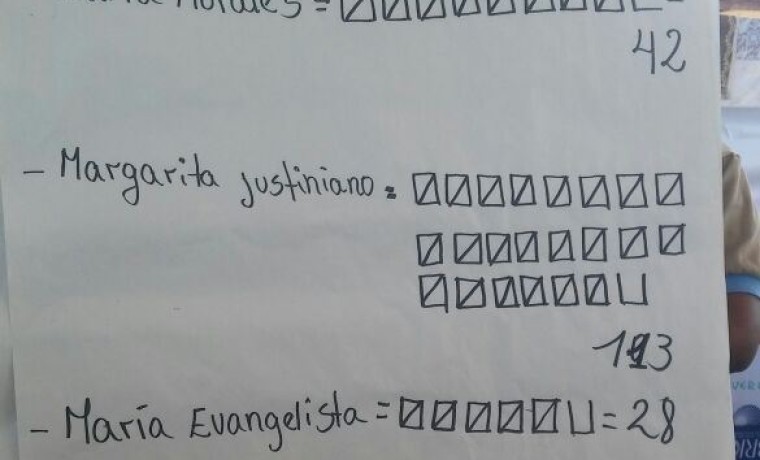 Morales =
42
- Margarita Justiniano =
113
- María Evangelista = = 28